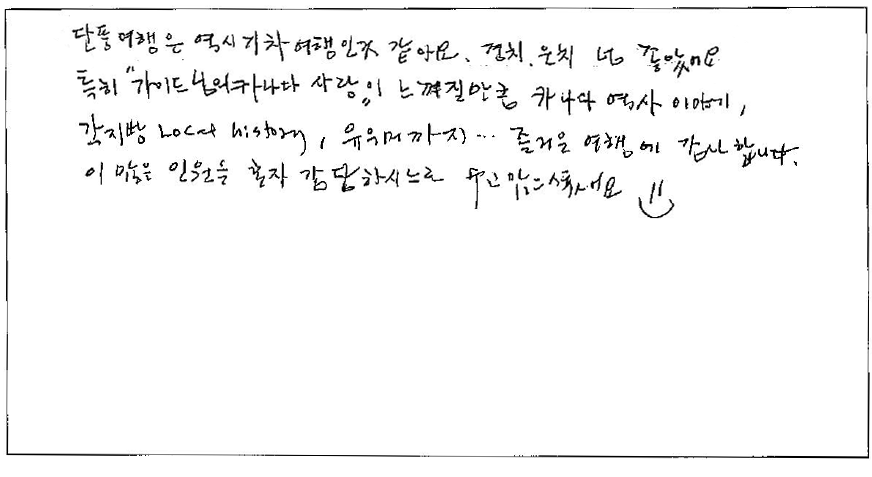 단풍여행은 역시 기차여행인것 같아요. 경치, 운치 넘 좋았어요
특히 "가이드님의 캐나다 사랑"이 느껴질만큼 캐나다 역사 이야기,
각지방 Local history, 유우머까지... 즐거운 여행에 감사합니다.
이 많은 인원을 혼자 감당하시느라 수고 많으셨어요